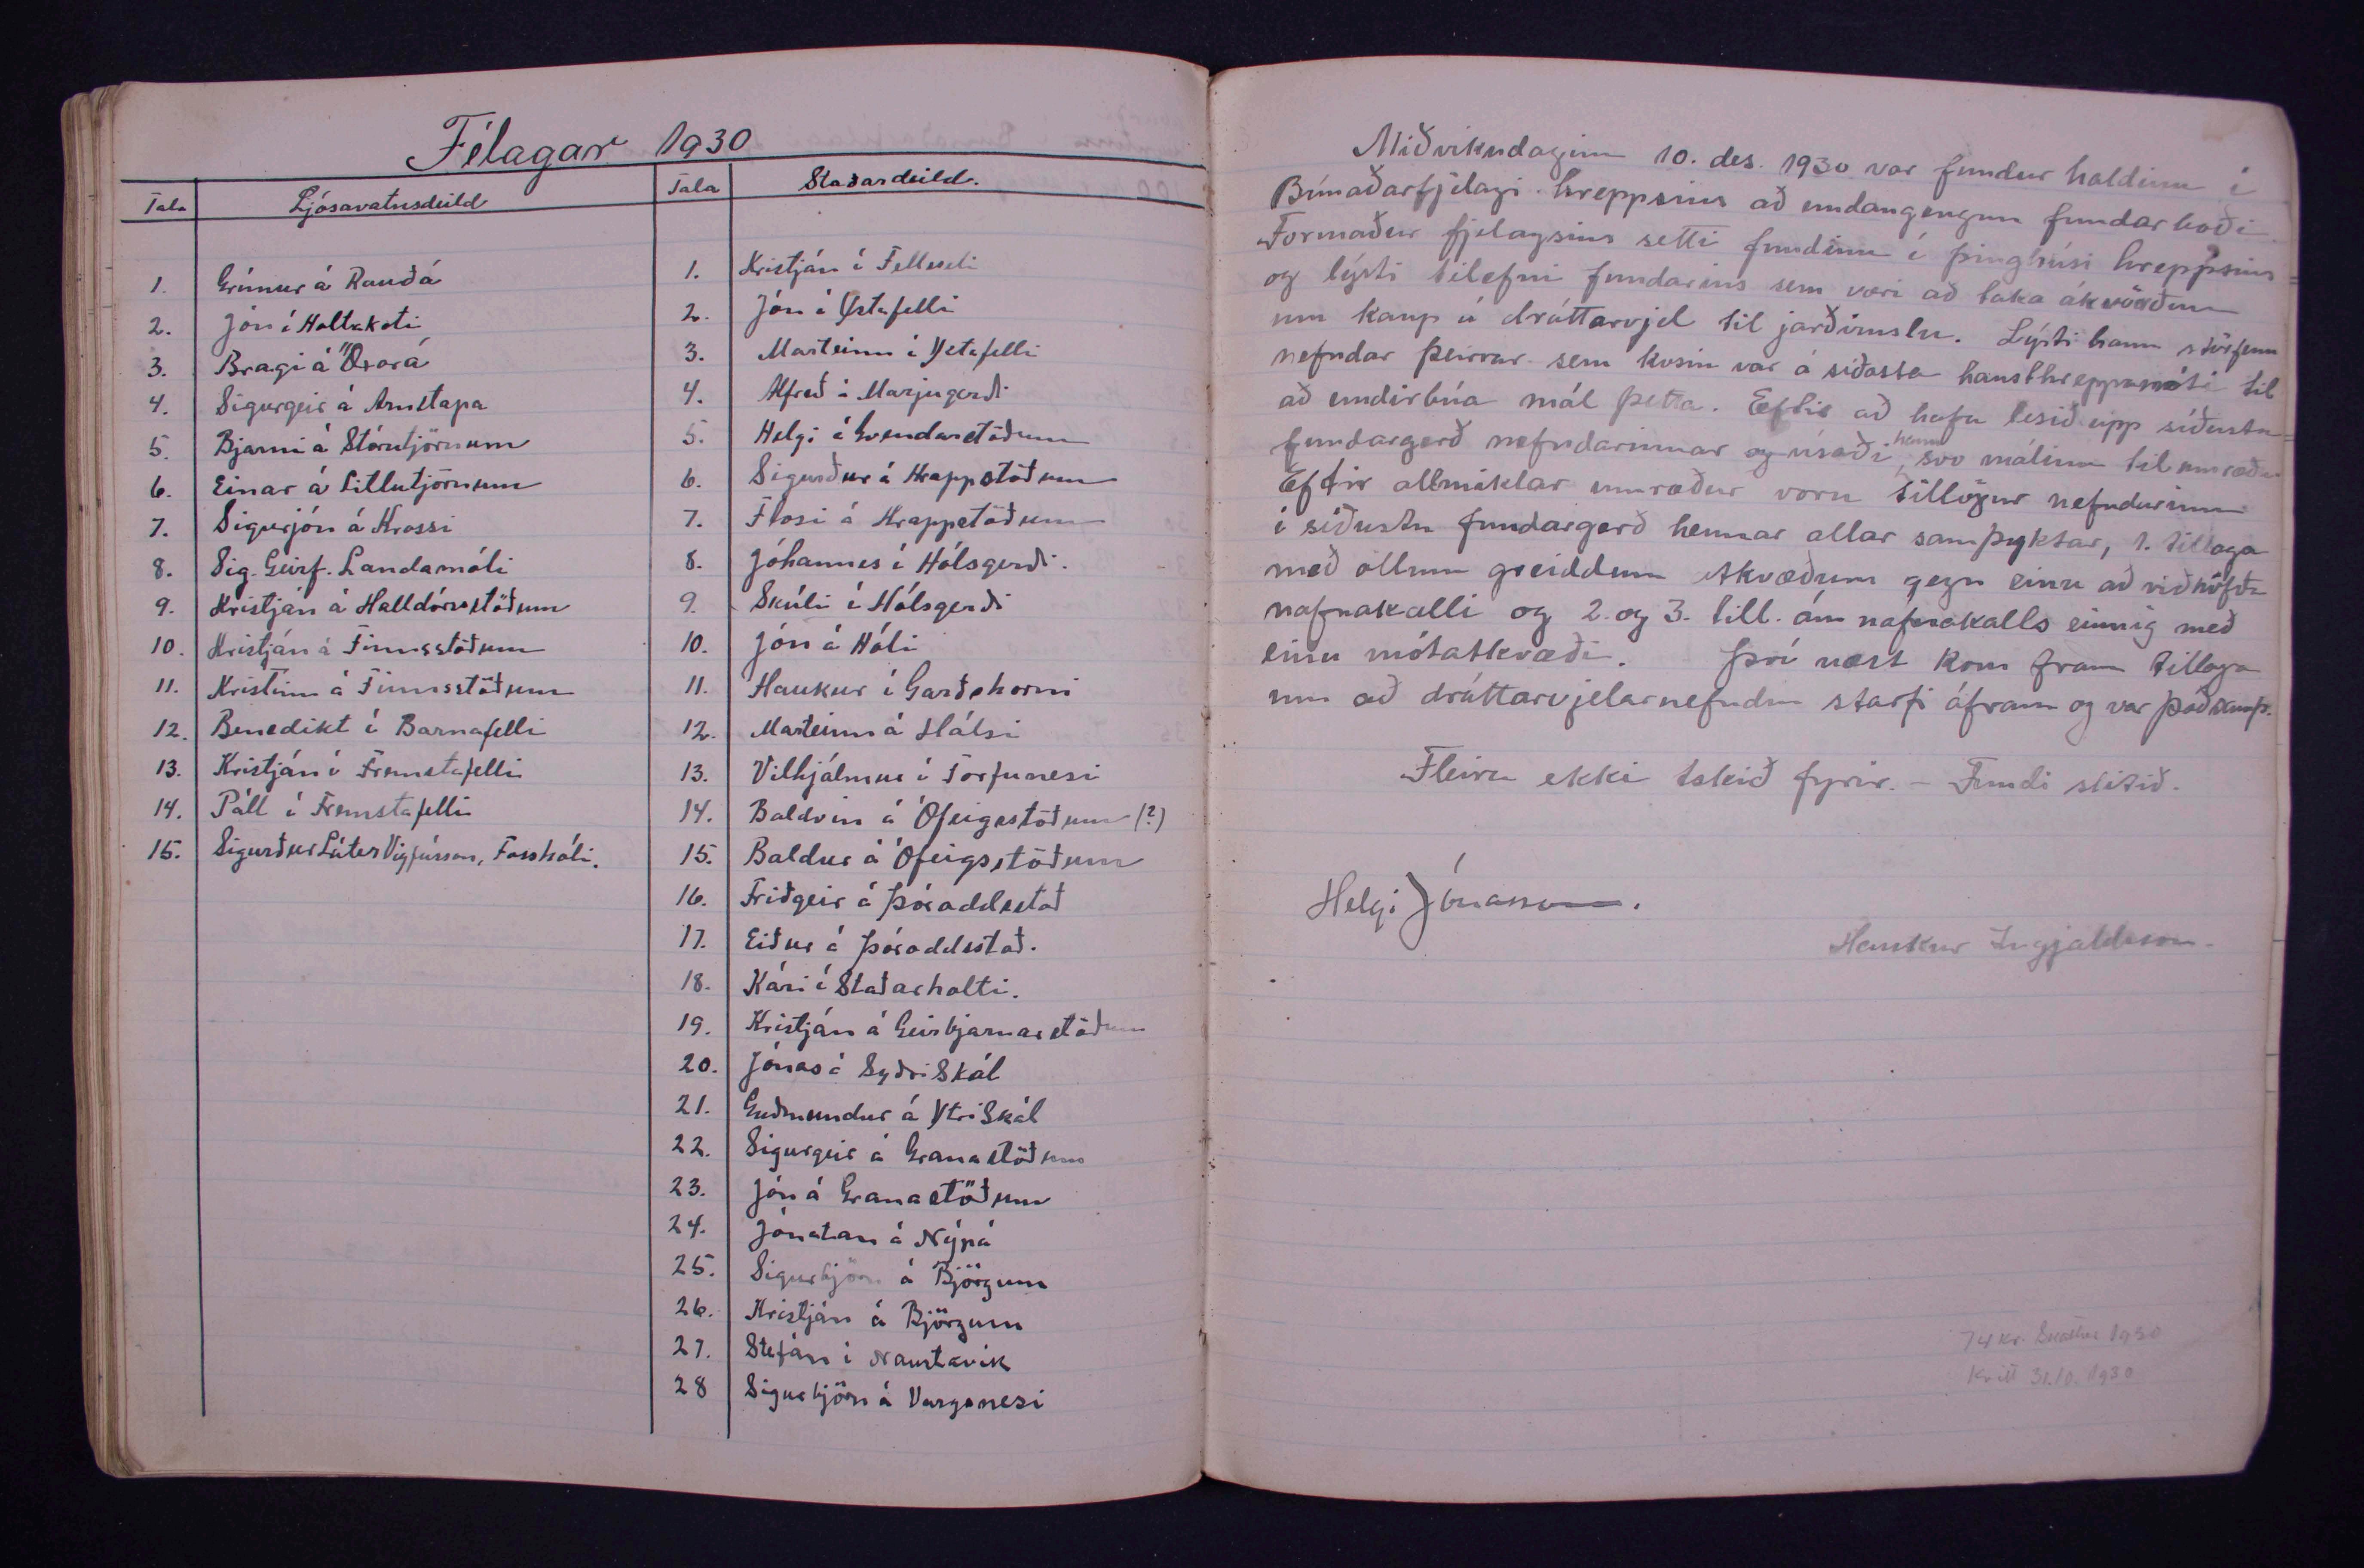 Félagar 1930
Tala Ljósavatnsdeild
1. Grímur á Rauðá
2. Jón í Holtakoti
3. Bragi á Öxará
4. Sigurgeir á Arnstapa
5. Bjarni á Stórutjörnum
6. Einar á Litlutjörnum
7. Sigurjón á Krossi
8. Sig. Geirf. Landamóti
9. Kristján á Halldórsstöðum
10. Kristján á Finnsstöðum
11. Kristinn á Finnsstöðum
12. Benedikt í Barnafelli
13. Kristján í Fremstafelli
14. Páll í Fremstafelli
15. Sigurður Lúter Vigfússon, Fosshóli.
Tala Staðardeild.
1. Kristján í Fellsseli
2. Jón í Ystafelli
3. Marteinn í Ystafelli
4. Alfreð í Marjugerði
5. Helgi á Gvendarstöðum
6. Sigurður á Hrappstöðum
7. Flosi á Hrappstöðum
8. Jóhannes í Hólsgerði.
9. Skúli í Hólsgerði
10. Jón á Hóli
11. Haukur í Garðshorni
12. Marteinn á Hálsi
13. Vilhjálmur í Torfunesi
14. Baldvin á Ófeigsstöðum (?)
15. Baldur á Ófeigsstöðum
16. Friðgeir á Þóroddsstað
17. Eiður á Þóroddsstað.
18. Kári í Staðarholti.
19. Kristján á Geirbjarnarstöðum
20. Jónas á SyðriSkál
21. Guðmundur á YtriSkál
22. Sigurgeir á Granastöðum
23. Jón á Granastöðum
24. Jónatan á Nýpá
25. Sigurbjörn á Björgum
26. Kristján á Björgum
27. Stefán í Naustavík
28 Sigurbjörn á Vargsnesi
Miðvikudaginn 10. des. 1930 var fundur haldinn í
Búnaðarfjelagi hreppsins að undangengnu fundarboði
Formaður fjelagsins setti fundinn í þinghúsi hreppsins
og lýsti tilefni fundarins sem væri að taka ákvörðun
um kaup á dráttarvjel til jarðvinslu. Lýsti hann störfum
nefndar þeirrar sem kosin var á síðasta hausthreppamóti til
að undirbúa mál þetta. Eftir að hafa lesið upp síðustu
fundargerð nefndarinnar og vísaði hann svo málinu til umræðu
Eftir allmiklar umræður voru tillögur nefndarinnar
í síðustu fundargerð hennar allar samþyktar, 1. tillaga
með öllum greiddum atkvæðum gegn einu að viðhöfðu
nafnakalli og 2. og 3. till. án nafnakalls einnig með
einu mótatkvæði. Því næst kom fram tillaga
um að dráttarvjelarnefndin starfi áfram og var það samþ.
Fleira ekki tekið fyrir. – Fundi slitið.
Helgi Jónasson.
Haukur Ingjaldsson.
74 kr. 1930
31.10. 1930